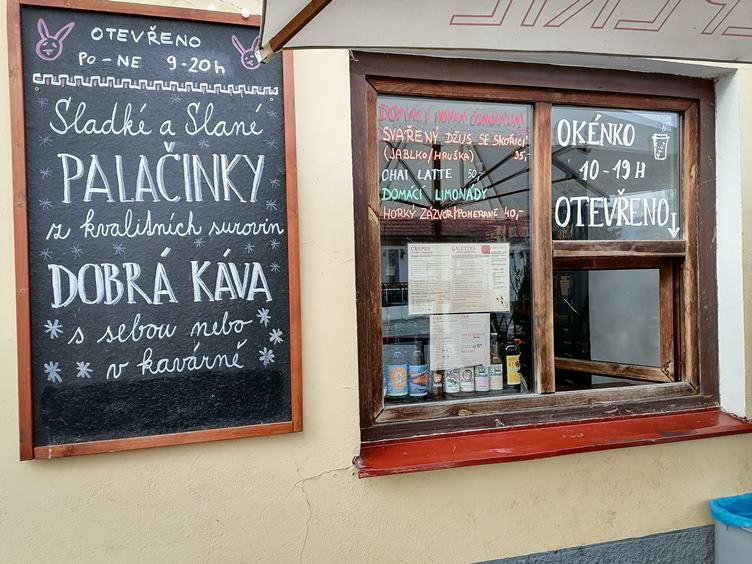 OTEVŘENO
PO-NE 9-20h
Sladké a Slané
PALAČINKY
z kvalitních surovin
DOBRÁ KÁVA
s sebou nebo
v kavárně
DOMÁCÍ
SVAŘENÝ DŽUS SE SKOŘICÍ
(JABLKO/HRUŠKA) 35,-
CHAI LATTE 50,-
DOMÁCÍ LIMONÁDY
HORKÝ ZÁZVOR/POMERANČ 40,-
OKÉNKO
10-19 H
OTEVŘENO
CREPES GALETTES